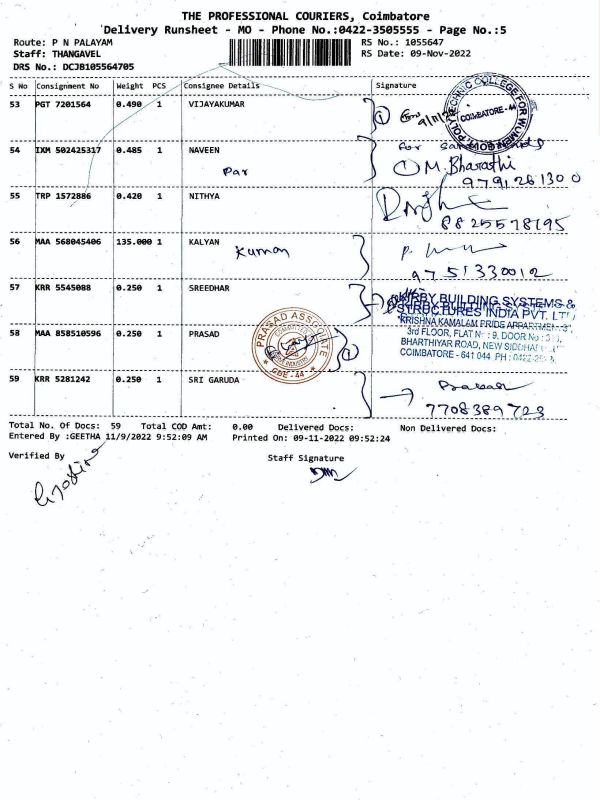 THE PROFESSIONAL COURIERS, Coimbatore
Delivery Runsheet - MO - Phone No.:0422-3505555 - Page No.:5
Route: P N PALAYAM RS No.: 1055647
Staff: THANGAVEL RS Date: 09-Nov-2022
DRS No.: DCJB105564705
S No Consignment No Weight PCS Consignee Details Signature
53 PGT 7201564 0.490 1 VIJAYAKUMAR 1
COIMBATORE - 44
54 IXM 502425317 0.485 1 NAVEEN for
Par 1 M. Bharathi
9791261300
55 TRP 1572886 0.420 1 NITHYA
8825578195
56 MAA 568045406 135.000 1 KALYAN
Kumar
9751330012
57 KRR 5545088 0.250 1 SREEDHAR
KIRBY BUILDING SYSTEMS &
STRUCTURES INDIA PVT. LTD
KRISHNA KAMALAM PRIDE APPARTMENTS
58 MAA 858510596 0.250 1 PRASAD 1
PRASAD ASSOCIATE
CBE - 44
3rd FLOOR, FLAT No : 9, DOOR No :
BHARTHIYAR ROAD, NEW
COIMBATORE - 641 044 PH : 0422
59 KRR 5281242 0.250 1 SRI GARUDA
7708389723
Total No. Of Docs: 59 Total COD Amt: 0.00 Delivered Docs: Non Delivered Docs:
Entered By :GEETHA 11/9/2022 9:52:09 AM Printed On: 09-11-2022 09:52:24
Verified By Staff Signature